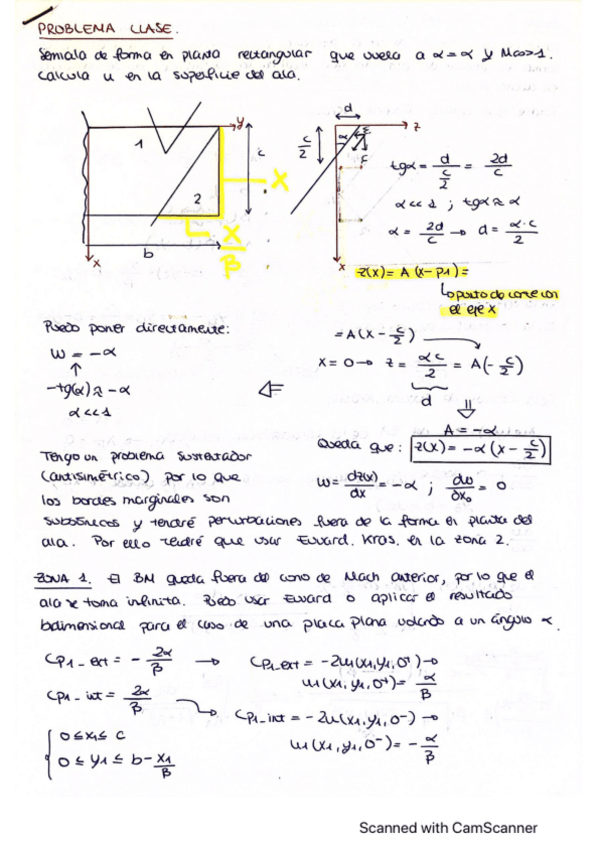 PROBLEMA CLASE.
Semiala de forma en planta rectangular que vuela a α=α y M∞>1.
Calcula u en la superficie del ala.
y
1
2
c
X
X/β
b
x
d
z
c/2
α
ε
x
tgα = d/(c/2) = 2d/c
α<<1 ; tgα ≈ α
α = 2d/c → d = α·c/2
z(x) = A (x - p1) =
↳ punto de corte con
el eje x
Puedo poner directamente:
= A(x - c/2)
w = -α
x = 0 → z = αc/2 = A(-c/2)
↑
d
-tg(α) ≈ -α
⇐
⇓
α<<1
A = -α
Queda que: z(x) = -α (x - c/2)
Tengo un problema sustentador
(antisimétrico), por lo que
w = dz(x)/dx = -α ; dw/dx₀ = 0
los bordes marginales son
subsónicos y tendré perturbaciones fuera de la forma en planta del
ala. Por ello tendré que usar Evvard. Kras. en la zona 2.
ZONA 1. El BM queda fuera del cono de Mach anterior, por lo que el
ala se toma infinita. Puedo usar Evvard o aplicar el resultado
bidimensional para el caso de una placa plana volando a un ángulo α.
Cp1_ext = - 2α/β → Cp1_ext = -2u1(x1,y1,0⁺) →
u1(x1,y1,0⁺) = α/β
Cp1_int = 2α/β
Cp1_int = -2u1(x1,y1,0⁻) →
u1(x1,y1,0⁻) = - α/β
{ 0 ≤ x1 ≤ c
0 ≤ y1 ≤ b - x1/β
Scanned with CamScanner